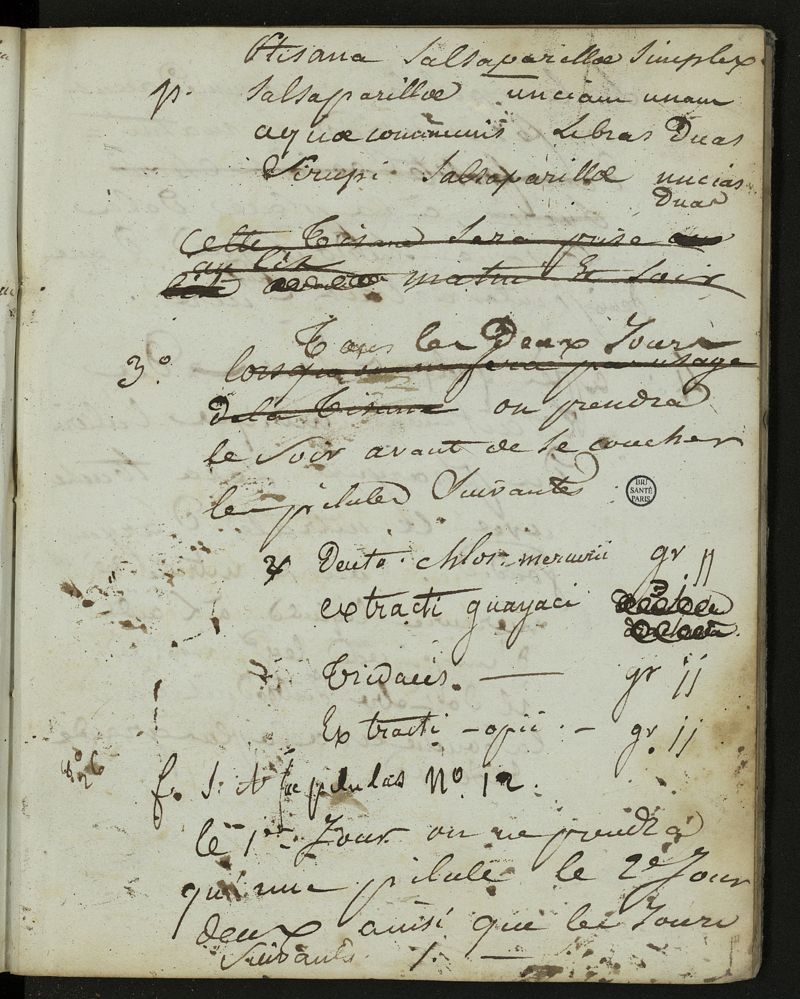 Ptisana Salsaparillæ Simplex.
p. Salsaparillæ unciam unam
aquæ communis Libras Duas
Sirupi Salsaparillæ uncias
Duas
cette tisane sera prise
au lit
matin Et Soir
Tous les Deux Jours
3.° lorsque on ne fera pas usage
de la tisane on prendra
le Soir avant de se coucher
les pilules Suivantes
BIU
SANTÉ
PARIS
Deuto. chlor. mercurii gr jj
extracti guayaci
Tridaces. — gr jj
Extracti - opii - gr. jj
n° 26
f. S. A pilulas N° 12.
le 1er Jour on ne prendra
qu'une pilule le 2e Jour
deux ainsi que les Jours
Suivants.